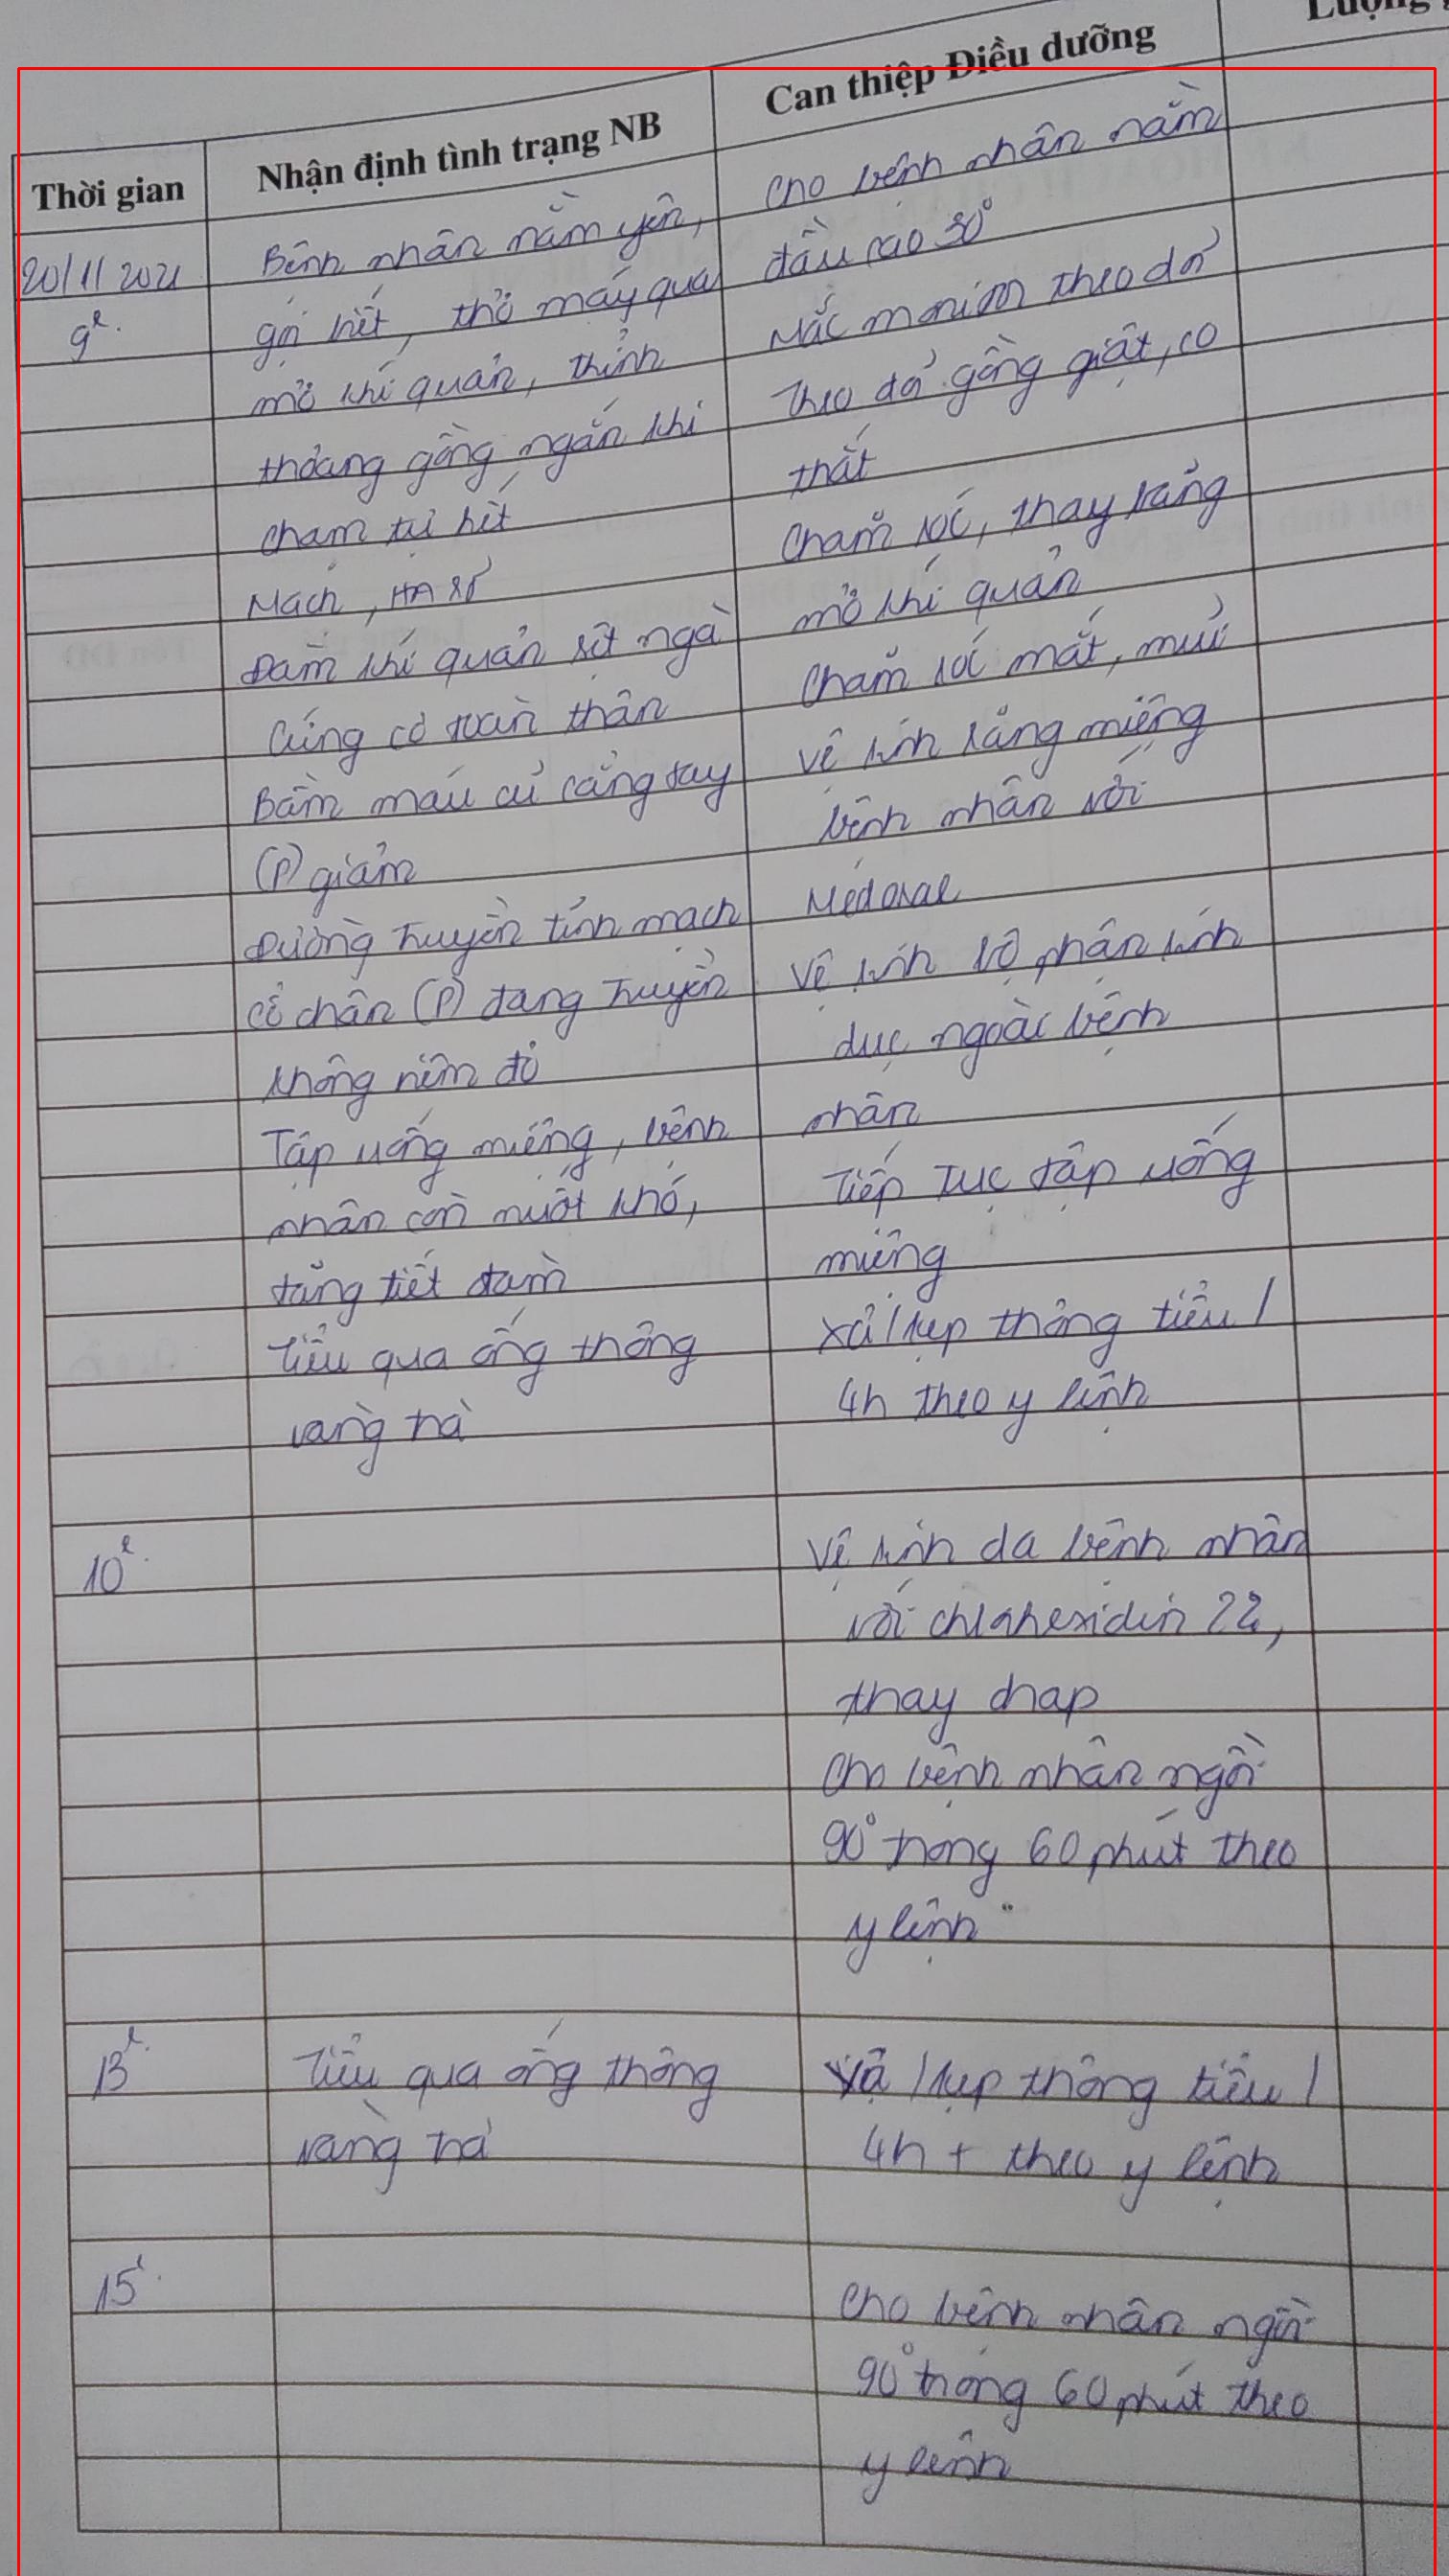 Lượng
Thời gian
Nhận định tình trạng NB
Can thiệp Điều dưỡng
20/11 2021
9h
Bệnh nhân nằm yên,
gọi biết, thở máy qua
mở khí quản, thỉnh
thoảng gồng ngắn khi
chạm tự hết
Mạch, HA số
Đàm khí quản sệt ngà
Cứng cơ toàn thân
Bầm máu cũ cẳng tay
(P) giảm
Đường Truyền tĩnh mạch
cổ chân (P) đang Truyền
không viêm đỏ
Tập uống miệng, bệnh
nhân còn nuốt khó,
tăng tiết đàm
Tiểu qua ống thông
vàng trà
Cho bệnh nhân nằm
đầu cao 30°
Mắc monitor theo dõi
Theo dõi gồng giật, co
thắt
Chăm sóc, thay băng
mở khí quản
Chăm sóc mắt, mũi
Vệ sinh răng miệng
bệnh nhân với
Medoral
Vệ sinh bộ phận sinh
dục ngoài bệnh
nhân
Tiếp Tục tập uống
miệng
Xả/kẹp thông tiểu /
4h theo y lệnh
10h
Vệ sinh da bệnh nhân
với chlohexidin 2%,
thay drap
Cho bệnh nhân ngồi
90° trong 60 phút theo
y lệnh
13h
Tiểu qua ống thông
vàng trà
Xả /kẹp thông tiểu /
4h + theo y lệnh
15h
Cho bệnh nhân ngồi
90° trong 60 phút theo
y lệnh